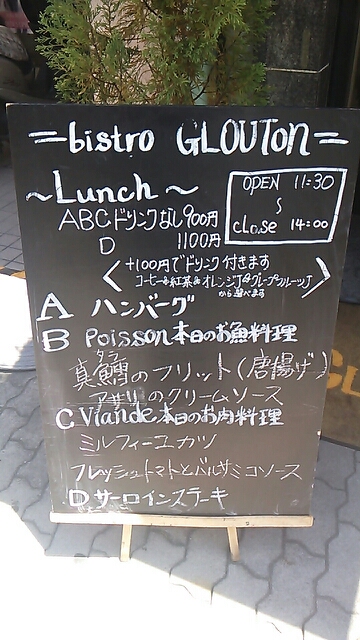 =bistro GLOUTon=
~Lunch~
OPEN 11:30
S
close 14:00
ABCドリンクなし900円
D 1100円
+100円でドリンク付きます
コーヒー&紅茶&オレンジJ&グレープフルーツJ
から選べます
A ハンバーグ
B Poisson本日のお魚料理
タラ
真鱈のフリット(唐揚げ)
アサリのクリームソース
C Viande本日のお肉料理
ミルフィーユカツ
フレッシュトマトとバルサミコソース
Dサーロインステーキ